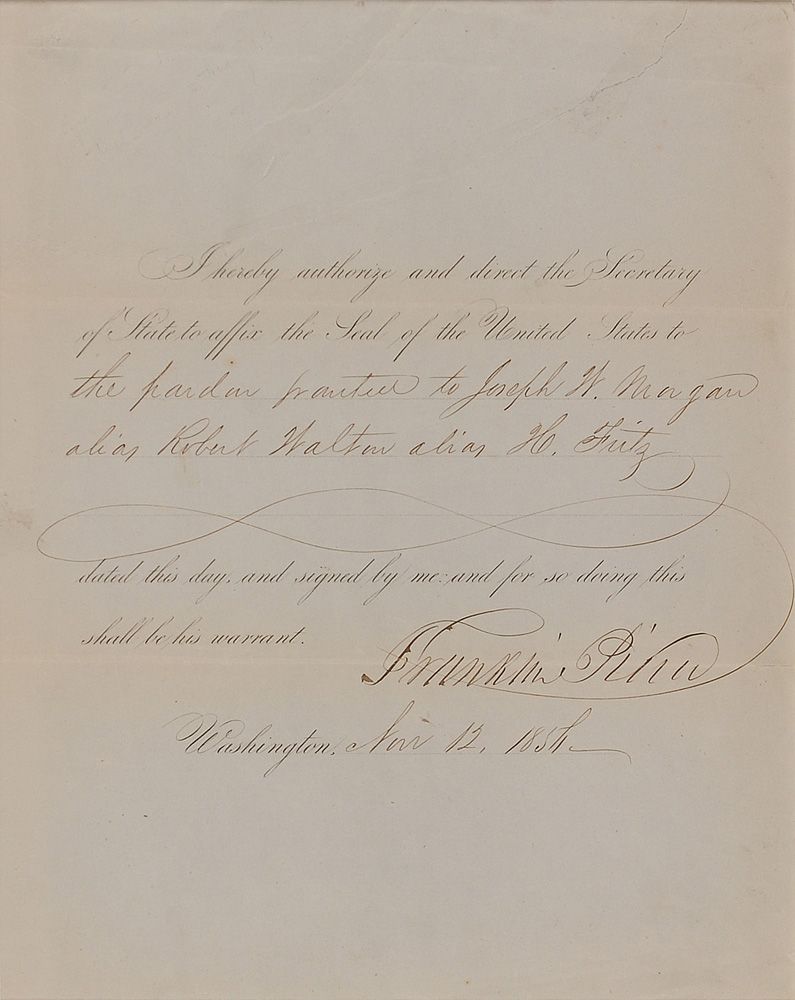 I hereby authorize and direct the Secretary
of State to affix the Seal of the United States to
the pardon granted to Joseph W. Morgan
alias Robert Walton alias H. Fritz
dated this day, and signed by me: and for so doing this
shall be his warrant.
Franklin Pierce
Washington, Nov 12, 1854